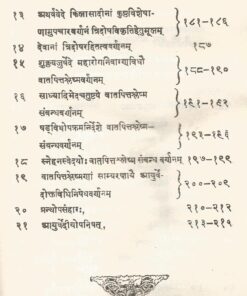 १३ अथर्ववेदे किलासादीनां कुष्ठविशेषा-
णामुपचारवर्णनं त्रिदोषविकृतिहेतुसूक्तम् १८१–१८६
१४ देवानां त्रिदोषरहितत्ववर्णनम् १८७
१५ शुक्लयजुर्वेदे महारोगनिवारणविधौ
वातपित्तश्लेष्मवर्णनम् १८८–१९०
१६ साध्यादिभेदचतुष्टये वातपित्तश्लेष्म
संबन्धवर्णनम् १९१–१९२
१७ षड्विधोपक्रमनिर्देशे वातपित्तश्लेष्म-
संबन्धवर्णनम् १९३–१९६
१८ स्नेहनस्वेदयोः वातपित्तश्लेष्म संबन्ध वर्णनम् १९७–१९९
१९ वातपित्तश्लेष्मणां साम्यरचार्थं आयुर्वे-
दोक्तविधिनिषेधवर्णनम् २००–२०९
२० ग्रन्थोपसंहारः, २१०–२१२
२१ आयुर्वेदीयोपनिषत्, २१३–२१४